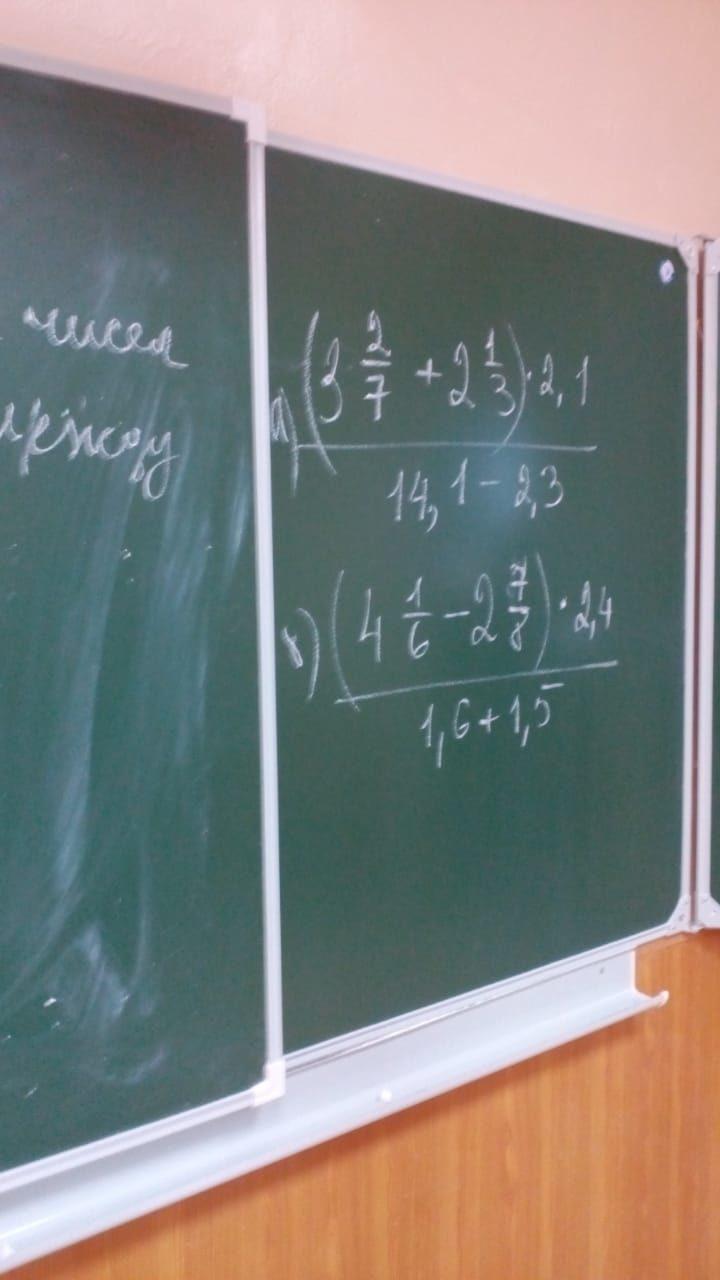 чисел
между
а) (3 2/7 + 2 1/3) · 2,1
14,1 - 2,3
в) (4 1/6 - 2 7/8) · 2,4
1,6 + 1,5